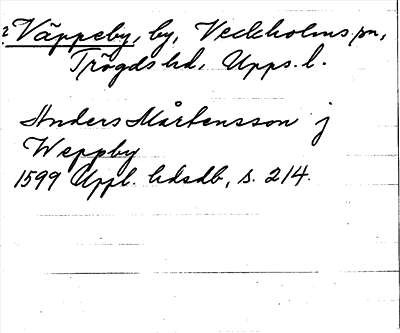 2 Väppeby, by, Veckholms sn,
Trögds hd, Upps. l.
Anders Mårtensson j
Weppby
1599 Uppl. hdsdb, s. 214.